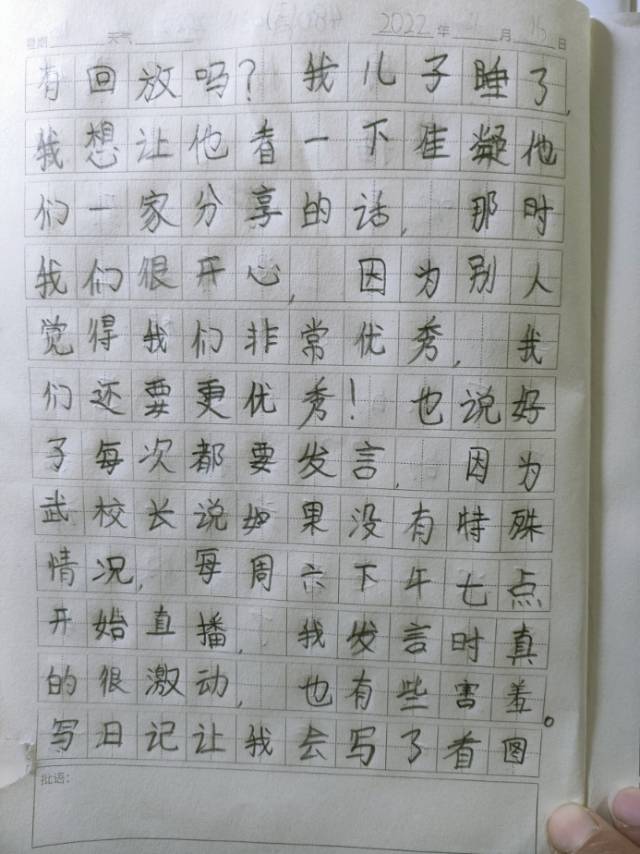 星期 天气 2022 年 月 15 日
有回放吗？我儿子睡了,
我想让他看一下佳凝他
们一家分享的话, 那时
我们很开心, 因为别人
觉得我们非常优秀, 我
们还要更优秀！也说好
了每次都要发言, 因为
武校长说如果没有特殊
情况, 每周六下午七点
开始直播, 我发言时真
的很激动, 也有些害羞。
写日记让我会写了看图
批语：